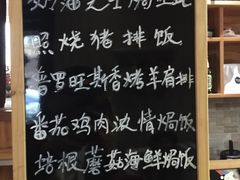 奶油芝士焗
照烧猪排饭
普罗旺斯香烤羊肩排
番茄鸡肉浓情焗饭
培根蘑菇海鲜焗饭